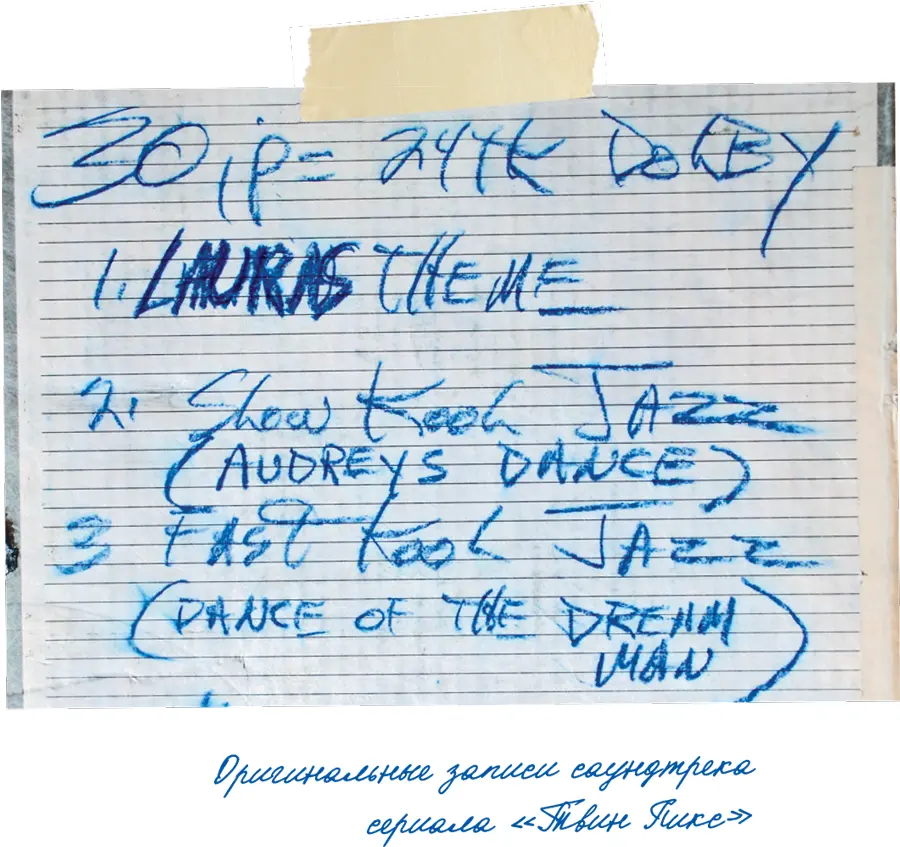 30 ip= 24TK DOLBY
1. LAURAS THEME
2. Slow Kool JAzz
(AUDREYS DANCE)
3 FAST Kool JAzz
(DANCE OF THE DREAM
MAN)
Оригинальные записи саундтрека
сериала «Твин Пикс»